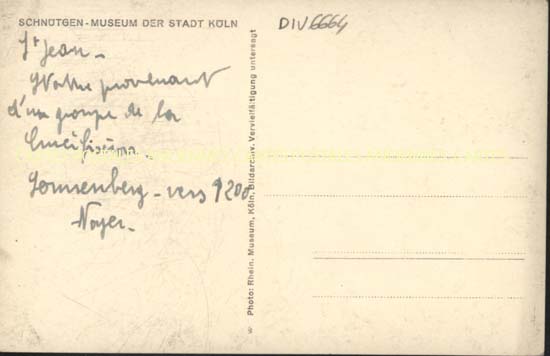 SCHNÜTGEN-MUSEUM DER STADT KÖLN
DIV6664
St Jean -
Statue provenant
d'un groupe de la
Crucifixion.
Sonnenberg - vers 1200
Noyer -
W Photo: Rhein. Museum, Köln, Bildarchiv. Vervielfältigung untersagt